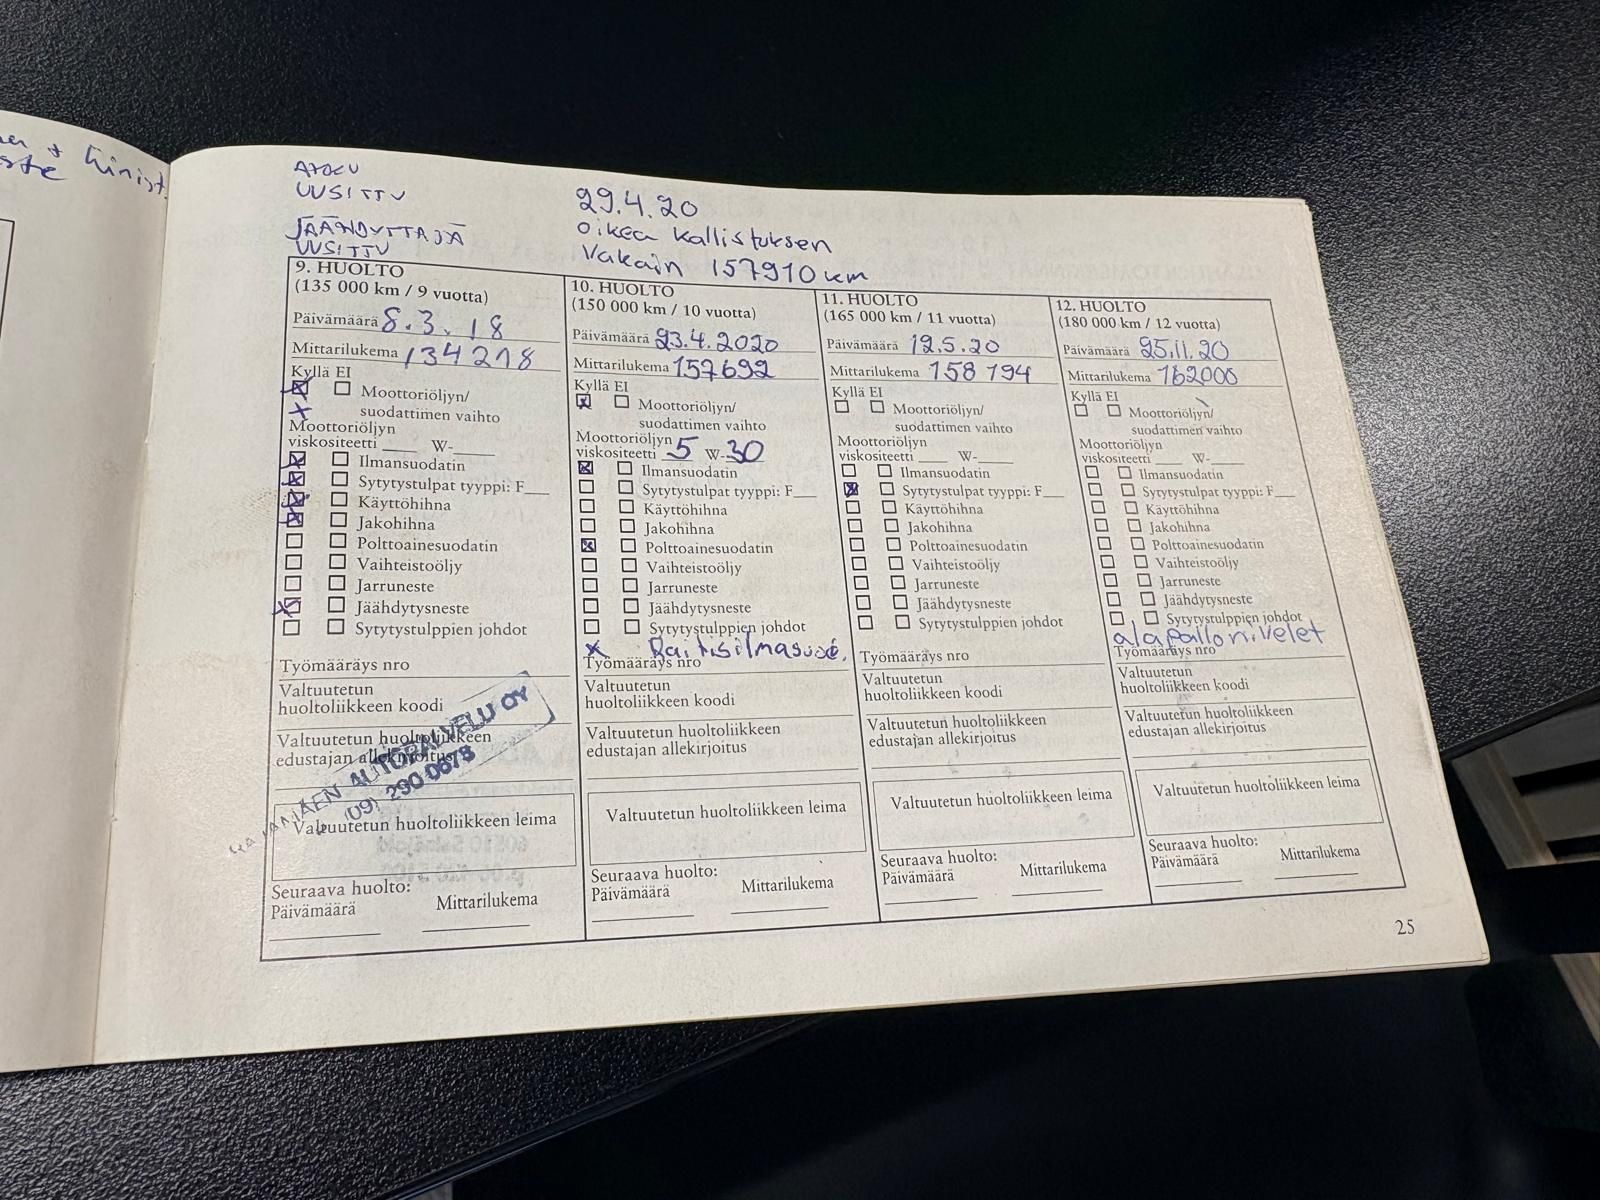 UUSITTU
JÄÄHDYTTAJÄ
UUSITTU
29.4.20
oikea kallistuksen
Vakain 157910 km
9. HUOLTO
(135 000 km / 9 vuotta)
Päivämäärä 8.3.18
Mittarilukema 134218
Kyllä EI
Moottoriöljyn/
suodattimen vaihto
Moottoriöljyn
viskositeetti ___ W-___
Ilmansuodatin
Sytytystulpat tyyppi: F___
Käyttöhihna
Jakohihna
Polttoainesuodatin
Vaihteistoöljy
Jarruneste
Jäähdytysneste
Sytytystulppien johdot
Työmääräys nro
Valtuutetun
huoltoliikkeen koodi
Valtuutetun huoltoliikkeen
edustajan allekirjoitus
AUTOPALVELU OY
(09) 290 0678
Valtuutetun huoltoliikkeen leima
Seuraava huolto:
Päivämäärä Mittarilukema
10. HUOLTO
(150 000 km / 10 vuotta)
Päivämäärä 23.4.2020
Mittarilukema 157692
Kyllä EI
Moottoriöljyn/
suodattimen vaihto
Moottoriöljyn
viskositeetti 5 W-30
Ilmansuodatin
Sytytystulpat tyyppi: F___
Käyttöhihna
Jakohihna
Polttoainesuodatin
Vaihteistoöljy
Jarruneste
Jäähdytysneste
Sytytystulppien johdot
x Raitisilmasuod.
Työmääräys nro
Valtuutetun
huoltoliikkeen koodi
Valtuutetun huoltoliikkeen
edustajan allekirjoitus
Valtuutetun huoltoliikkeen leima
Seuraava huolto:
Päivämäärä Mittarilukema
11. HUOLTO
(165 000 km / 11 vuotta)
Päivämäärä 12.5.20
Mittarilukema 158 194
Kyllä EI
Moottoriöljyn/
suodattimen vaihto
Moottoriöljyn
viskositeetti ___ W-___
Ilmansuodatin
Sytytystulpat tyyppi: F___
Käyttöhihna
Jakohihna
Polttoainesuodatin
Vaihteistoöljy
Jarruneste
Jäähdytysneste
Sytytystulppien johdot
Työmääräys nro
Valtuutetun
huoltoliikkeen koodi
Valtuutetun huoltoliikkeen
edustajan allekirjoitus
Valtuutetun huoltoliikkeen leima
Seuraava huolto:
Päivämäärä Mittarilukema
12. HUOLTO
(180 000 km / 12 vuotta)
Päivämäärä 25.11.20
Mittarilukema 162000
Kyllä EI
Moottoriöljyn/
suodattimen vaihto
Moottoriöljyn
viskositeetti ___ W-___
Ilmansuodatin
Sytytystulpat tyyppi: F___
Käyttöhihna
Jakohihna
Polttoainesuodatin
Vaihteistoöljy
Jarruneste
Jäähdytysneste
Sytytystulppien johdot
alapallonivelet
Työmääräys nro
Valtuutetun
huoltoliikkeen koodi
Valtuutetun huoltoliikkeen
edustajan allekirjoitus
Valtuutetun huoltoliikkeen leima
Seuraava huolto:
Päivämäärä Mittarilukema
25